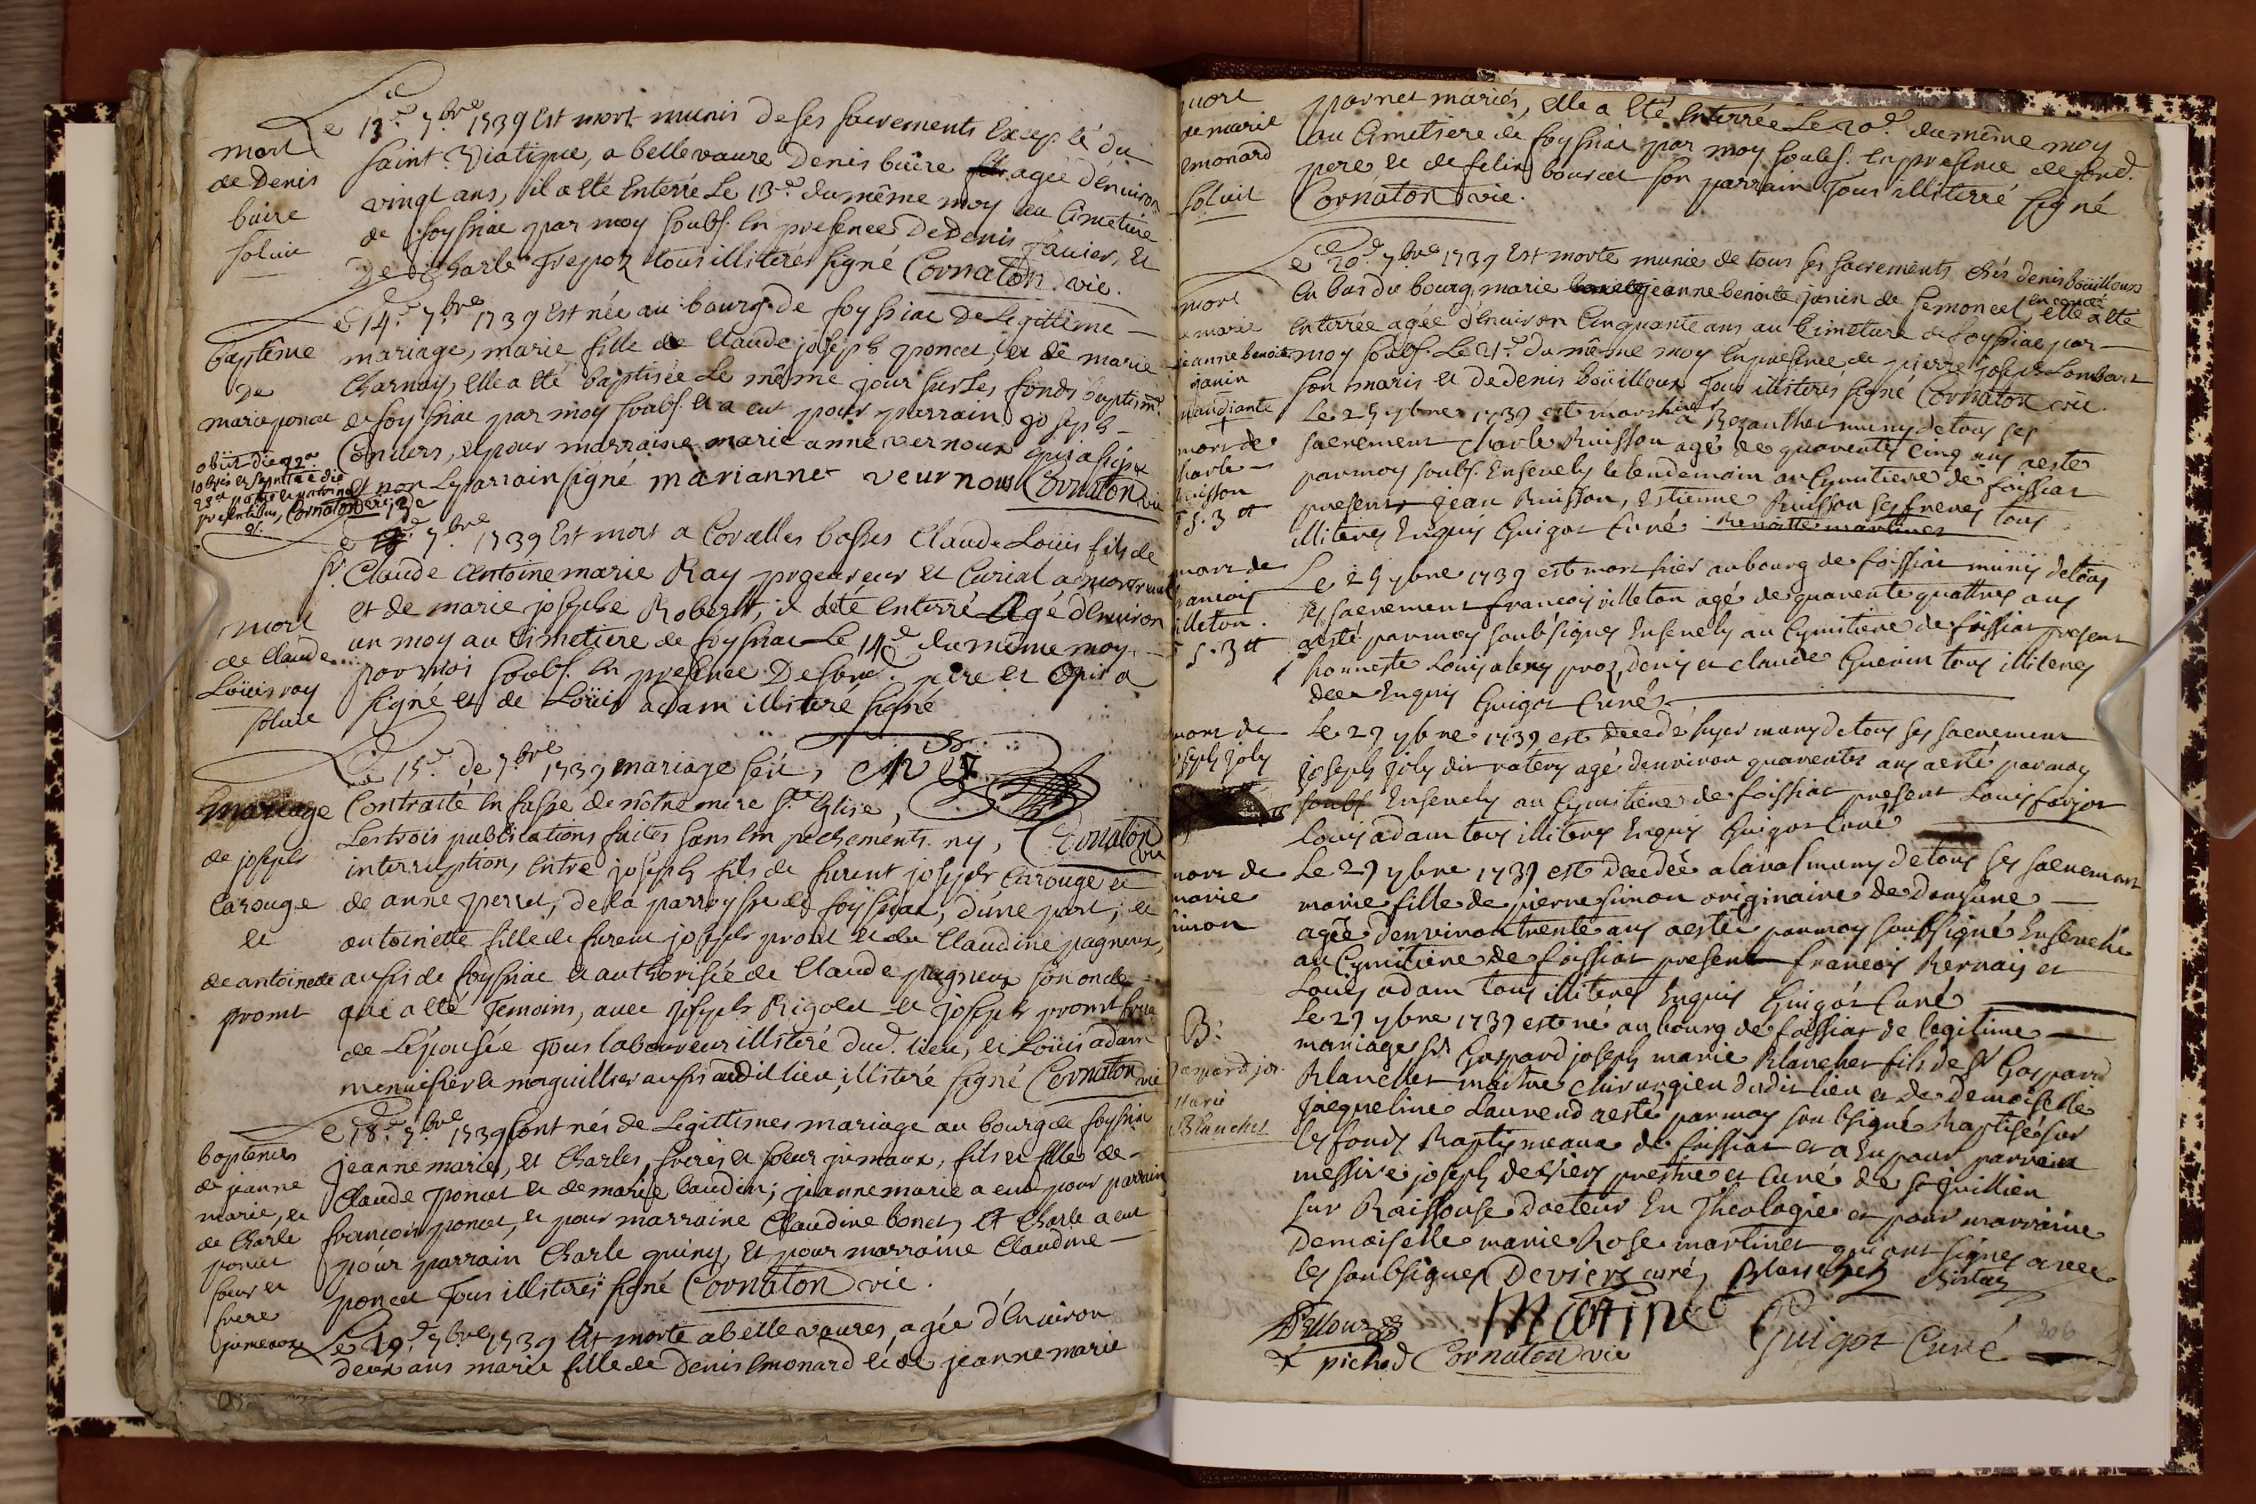 mort
de Denis
buire
soluit
Le 13.e 7.bre 1739 Est mort munis de ses sacrements Excepté du
saint Viatique, a bellevaure Denis buire agée d'Environ
vingt ans, il a été Enterré Le 13.e du même moy au Cimetiere
de foyssiac par moy soubs. En presence De Denis janier, Et
De Charle Trepoz tous illitérés signé Cornaton vic.
baptême
De
marie poncet
Le 14.e 7.bre 1739 Est née au bourg de foyssiac De Legittime
mariage, marie fille de Claude joseph poncet, et de marie
Charnay, Elle a été baptisée Le même jour sur Les fonds baptism.
de foyssiac par moy soubs. Et a eut pour parrain joseph
Convers, et pour marraine marie anne vernoux qui a signé
Et non Le parrain signé marianne veurnou Cornaton vic
mort
de Claude
Loüis ray
soluit
Le 13.e 7.bre 1739 Est mort a Coralles basses Claude Loüis fils de
s.r Claude Antoine marie Ray procureur et Curial a montreval
et de marie josephe Robert, il a été Enterré Agé d'Environ
un moy au Cimetiere de foyssiac Le 14.e du même moy
par moi soubs. En presence De son d. pere et qui a
signé et de Loüis adam illiteré signé
Cornaton
vic
mariage
de joseph
Carouge
et
de antoinette
promt
Le 15.e de 7.bre 1739 mariage fait,
Contracté En fasse de nôtre mere s.te Eglise,
Les trois publications faites sans Enpechements ny,
interruption, Entre joseph fils de furent joseph Carouge et
de anne perret, de la parroysse de foyssiac, d'une part; et
antoinette fille de furent joseph promt et de Claudine pagneux,
aussi de foyssiac et authorisée de Claude pagneux son oncle
qui a été Temoins, avec joseph Rigolet et joseph promt frere
de L'épousée Tous laboureur illiteré dud. lieu, et Loüis adam
menuisier et marguillier aussi audit lieu, illiteré signé Cornaton vic
baptemes
de jeanne
marie, et
de Charle
poncet
soeur et
frere
jumeaux
Le 18.e 7.bre 1739 sont nés de Legittimes mariage au bourg de foyssiac
jeanne marie, et Charles, freres et soeur jumeaux, fils et fille de
Claude poncet et de marie baudin; jeanne marie a eut pour parrain
françois poncet, et pour marraine Claudine bonet, Et Charle a eut
pour parrain Charle quiny, Et pour marraine Claudine
poncet Tous illiterés signé Cornaton vic.
Le 19.e 7.bre 1739 Est morte a bellevaures, agée d'Environ
deux ans marie fille de Denis Emonard et de jeanne marie
mort
de marie
Emonard
soluit
parnet mariés, Elle a été Enterrée Le 20.e du même moy
au Cimetiere de foyssiac par moy soubs. En presence de sond.
pere et de felix bourcet son parrain Tous illiterré signé
Cornaton vic.
mort
de marie
jeanne benoite
janin
mandiante
Le 20.e 7.bre 1739 Est morte munie de tous ses sacrements chés denis boüilloux
En bas du bourg, marie jeanne benoite janin de semoncel en comté, elle a été
Enterrée agée d'Environ Cinquante ans au Cimetiere de foyssiac par
moy soubs. Le 21.e du même moy En presence de pierre joseph Lombart
son maris et de denis boüilloux Tous illiterés signé Cornaton vic.
mort de
charle
Ruisson
Le 25 7bre 1739 est mort hier a Bezanther muny de tous ses
sacrement charle Ruisson agé de quarente cinq ans a esté
par moy soubs. Ensevely le lendemain au Cymitiere de foissiat
present jean Ruisson, Estienne Ruisson ses freres tous
illiteres Enquis Guigot Curé
mort de
francois
villeton.
Le 25 7bre 1739 est mort hier au bourg de foissiat muny de tous
ses sacrement francois villeton agé de quarente quattres ans
a esté par moy soubsignes Ensevely au Cymitiere de foissiat present
honneste Louis alexy proz, denis et claude Guerin tous illiteres
de ce Enquis Guigot Curé
mort de
joseph joly
Le 27 7bre 1739 est decedé hyer muny de tous ses sacrement
joseph joly dit ratery agé denviron quarentes ans a esté par moy
soubs Ensevely au Cymitiere de foissiat present Louis farjot
Louis adam tous illiteres Enquis Guigot Curé
mort de
marie
simon
Le 27 7bre 1739 est decedée a laval muny de tous ses sacrement
marie fille de pierre simon originaire de domsure
agée denviron trente ans a estée par moy soubsigné Ensevelie
au Cymitiere de foissiat present francois Bernais et
Louis adam tous illiteres Enquis Guigot Curé
B:
Gaspard jos.
Marie
Blanchet
Le 27 7bre 1739 est né au bourg de foissiat de legitime
mariage s.r Gaspard joseph marie Blanchet fils de S.r Gaspard
Blanchet maitre chirurgien dudit lieu et de demoiselle
jacqueline Laurend a esté par moy soubsigné Baptisé sur
les fonds Baptismeaux de foissiat et a Eu pour parrain
messire joseph deviers prestre et Curé de st jullien
sur Raissouse docteur En Theologie et pour marraine
Demoiselle marie Rose martinet qui ont signes avec
les soubsignes Deviers curé, Blanchet
Martinet
Guigot Curé
pichod Cornaton vic